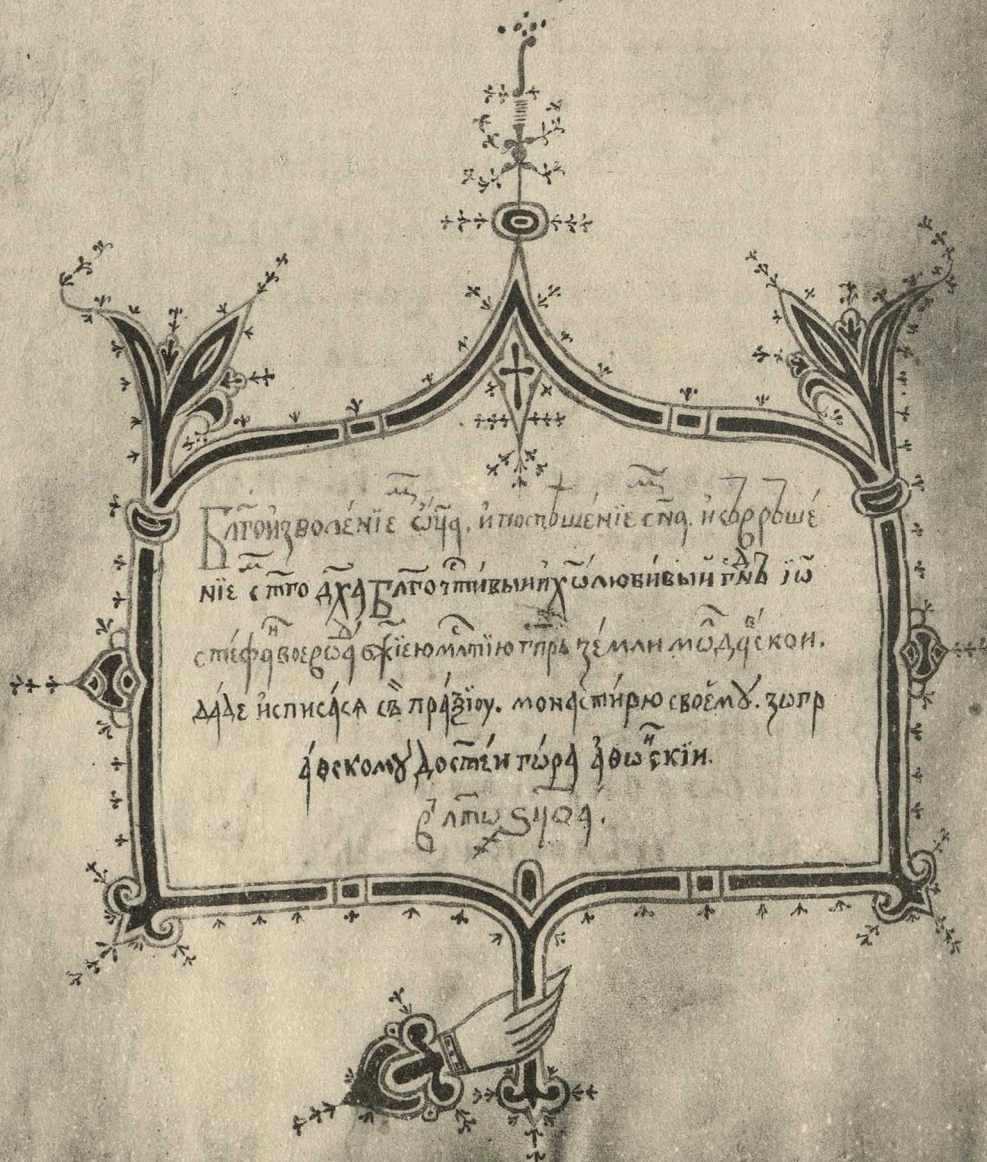 Бл҃гоизволе́нїе ѿц҃а. и҆ поспѣше́нїе сн҃а. и҆ съврьше́
нїе ст҃го дх҃а Бл҃гочтⷭ҇ивыи и҆ хо҃любивыи гⷭ҇днь їѡ҃
стефа́нь воево́да бж҃їею млⷭ҇тїю гп҃рь зе́мли молдавⷭ҇кои.
да́де и҆списа́ся съ̀ пра́ѯїоу. монасти́рю своемꙋ̀. зѡгр
а́фскомꙋ̀ до ст҃ѣи го́ра а҆ѳѡⷩ҇скїи.
в̾ лѣ́тѡ ҂ѕц҃ѳа.